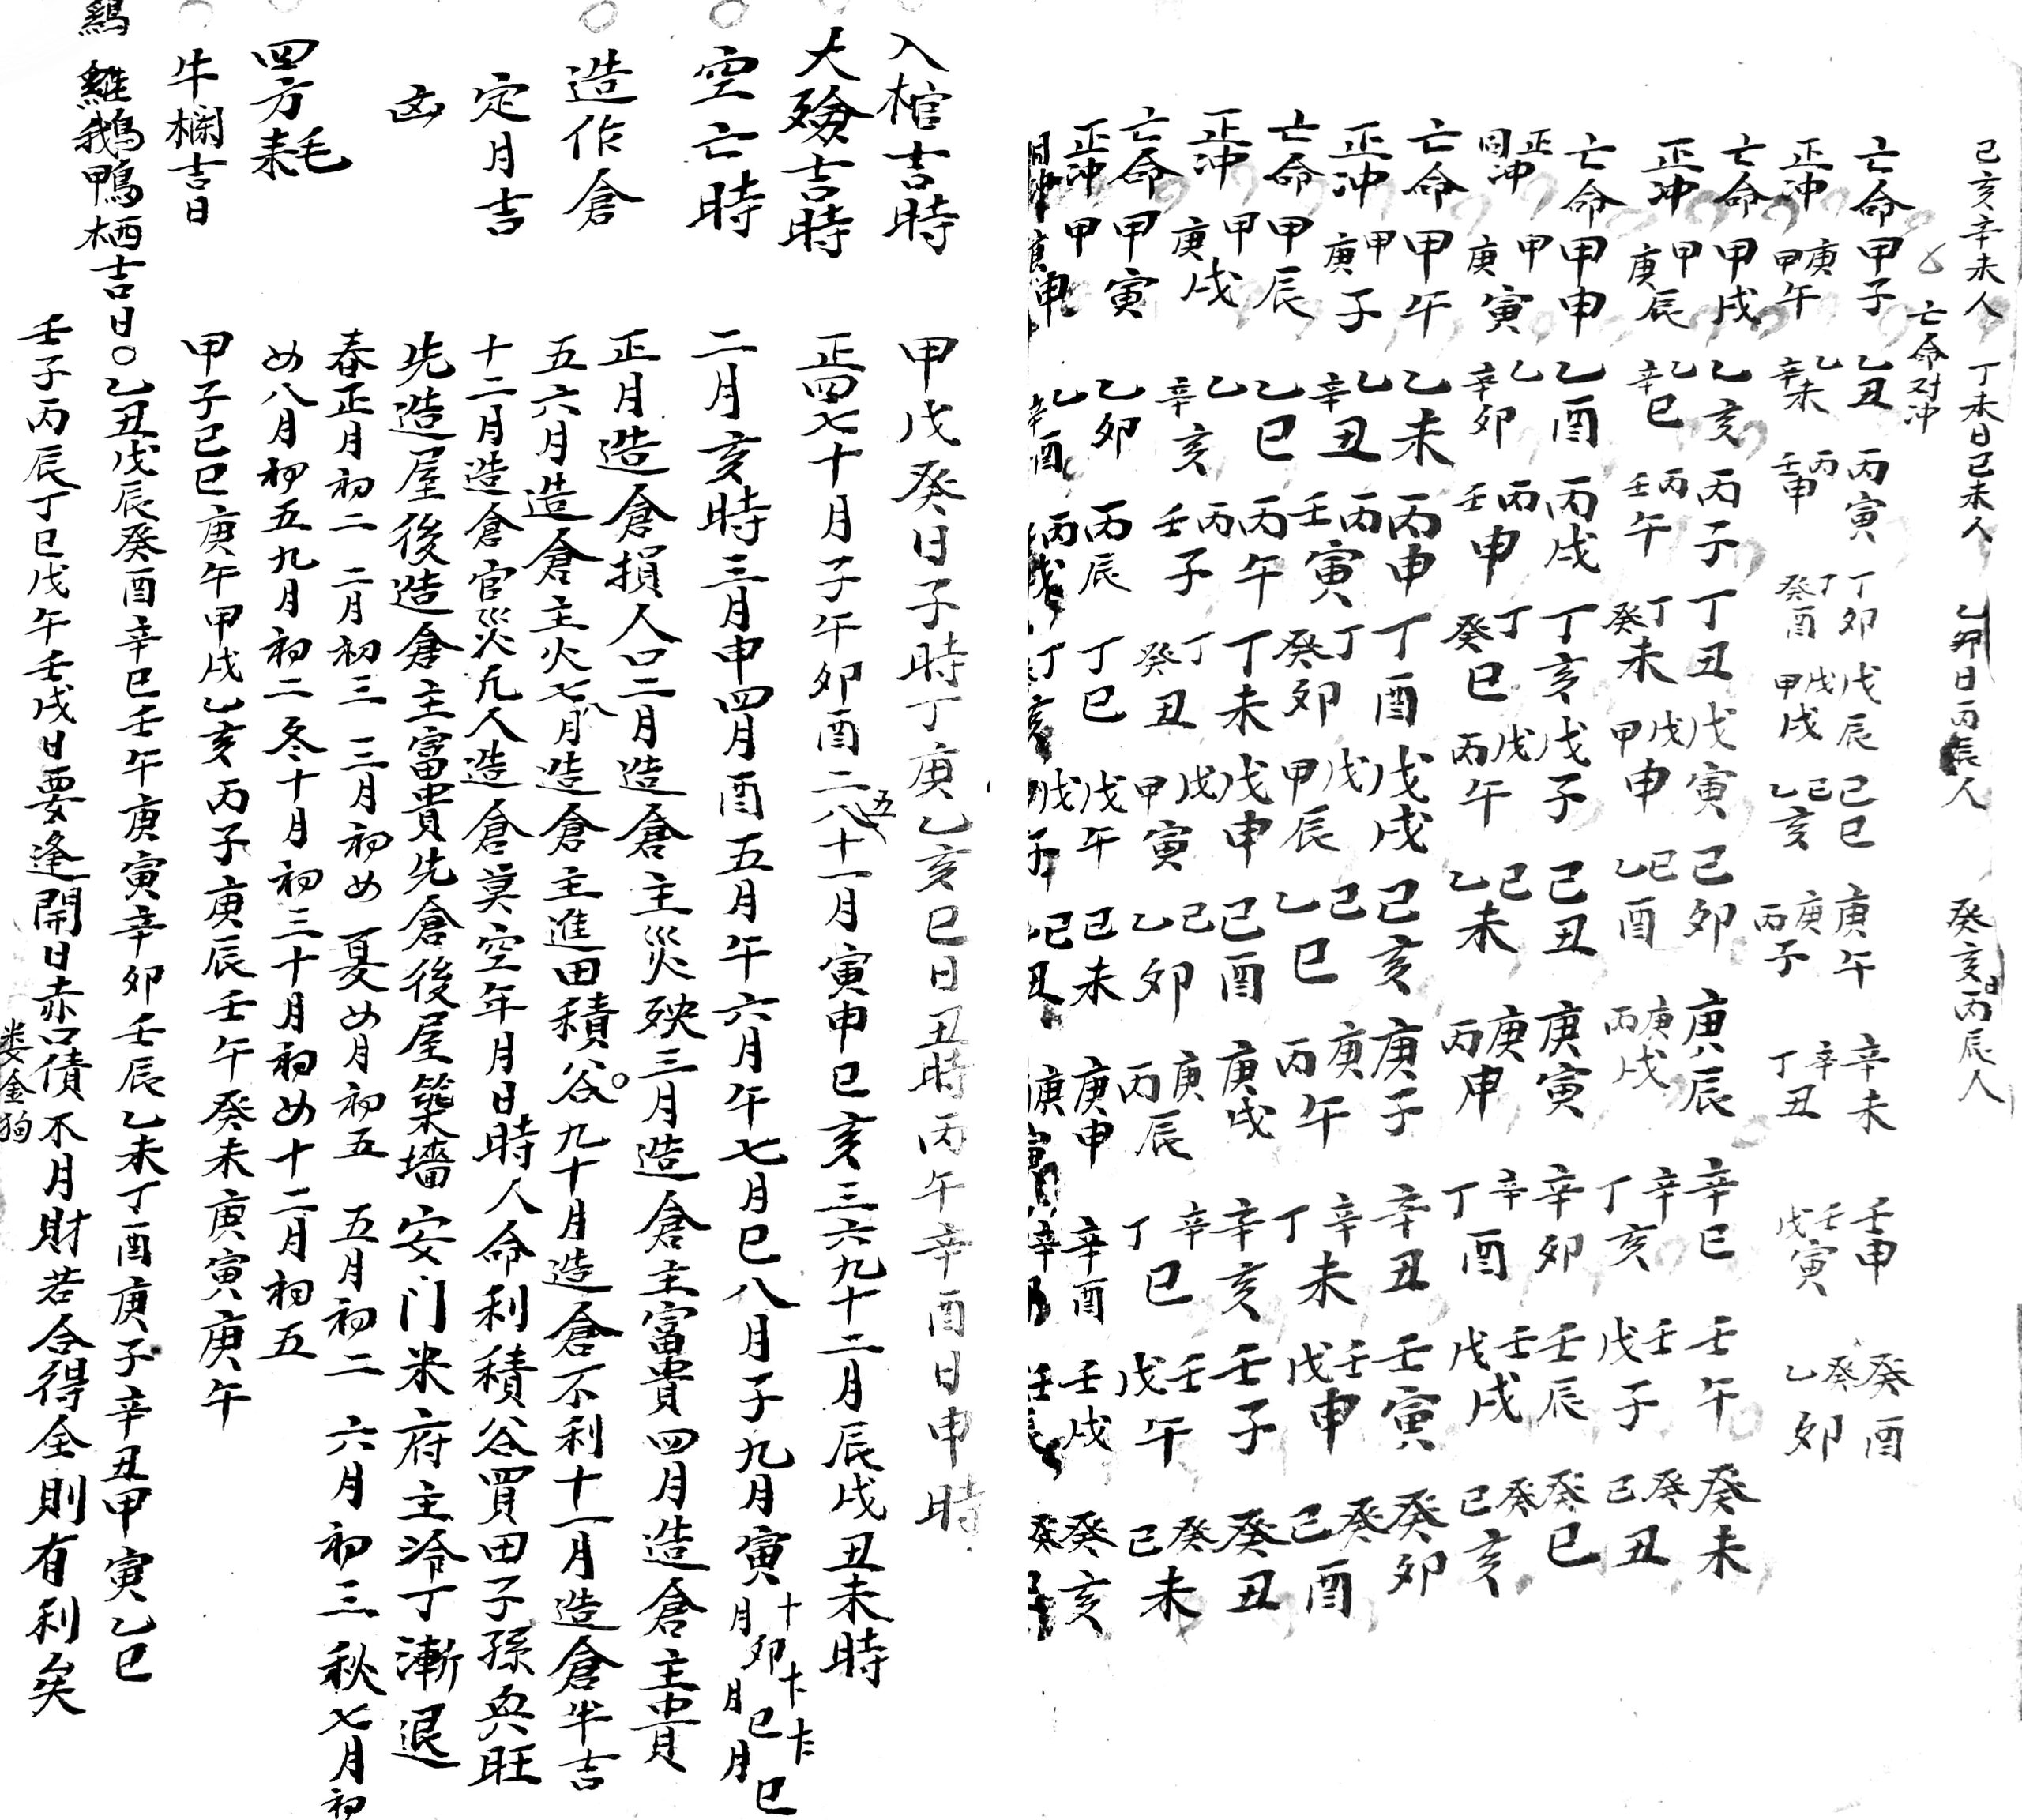 己亥辛未人 丁未日己未人 乙卯日丙辰人 癸亥日丙辰人
亡命对冲
亡命甲子 乙丑 丙寅 丁卯 戊辰 己巳 庚午 辛未 壬申 癸酉
正冲甲庚午 辛乙未 壬丙申 癸丁酉 甲戊戌 乙己亥 丙庚子 丁辛丑 戊壬寅 乙癸卯
亡命甲戌 乙亥 丙子 丁丑 戊寅 己卯 庚辰 辛巳 壬午 癸未
正冲甲庚辰 辛乙巳 壬丙午 癸丁未 甲戊申 乙己酉 丙庚戌 丁辛亥 戊壬子 己癸丑
亡命甲申 乙酉 丙戌 丁亥 戊子 己丑 庚寅 辛卯 壬辰 癸巳
正冲甲庚寅 辛乙卯 壬丙申 癸丁巳 丙戊午 乙己未 丙庚申 丁辛酉 戊壬戌 己癸亥
亡命甲午 乙未 丙申 丁酉 戊戌 己亥 庚子 辛丑 壬寅 癸卯
正冲甲庚子 辛乙丑 壬丙寅 癸丁卯 甲戊辰 乙己巳 丙庚午 丁辛未 戊壬申 己癸酉
亡命甲辰 乙巳 丙午 丁未 戊申 己酉 庚戌 辛亥 壬子 癸丑
正冲甲庚戌 辛乙亥 壬丙子 癸丁丑 甲戊寅 乙己卯 丙庚辰 丁辛巳 戊壬午 己癸未
亡命甲寅 乙卯 丙辰 丁巳 戊午 己未 庚申 辛酉 壬戌 癸亥
正冲甲
入棺吉時 甲戊癸日子時丁庚乙亥巳日丑時丙午辛酉日申時
大殮吉時 正四七十月子午卯酉二五八十一月寅申巳亥三六九十二月辰戌丑未時
空亡時 二月亥時三月申四月酉五月午六月午七月巳八月子九月寅十月卯十一月巳十二月巳
造作倉 正月造倉損人口二月造倉主災殃三月造倉主富貴四月造倉主貴
五六月造倉主火七八月造倉主進田積谷。九十月造倉不利十一月造倉半吉
定月吉 十二月造倉官災凢人造倉莫空年月日時人命利積谷買田子孫興旺
凶 先造屋後造倉主富貴先倉後屋築墻安门米府主冷丁漸退
四方耗 春正月初二 二月初三 三月初四 夏四月初五 五月初二 六月初三秋七月初
四八月初五九月初二冬十月初三十月初四十二月初五
牛欄吉日 甲子己巳庚午甲戌乙亥丙子庚辰壬午癸未庚寅庚午
雞鵝鴨栖吉日○乙丑戊辰癸酉辛巳壬午庚寅辛卯壬辰乙未丁酉庚子辛丑甲寅乙巳
壬子丙辰丁巳戊午壬戌日要逢開日赤口債不月財若合得全則有利矣
婁金狗